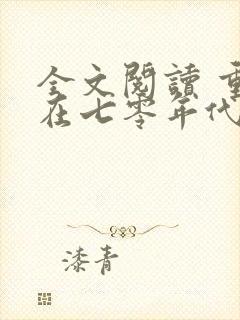 全文閱讀
在七零年代
漆青